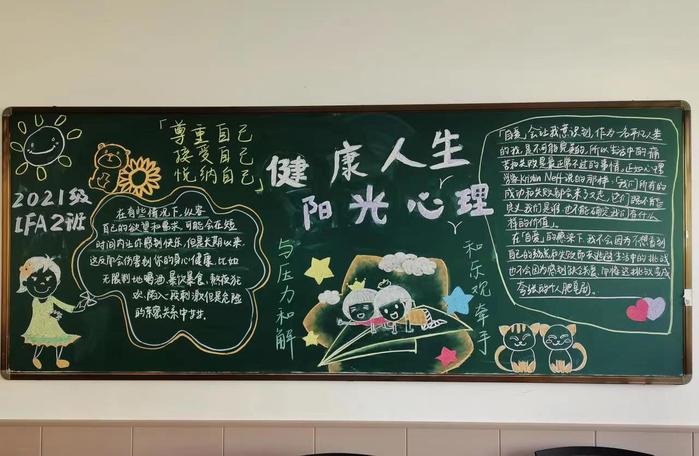 2021级
IFA2班
「尊重自己
接受自己
悦纳自己」
健康人生
阳光心理
在有些情况下,纵容
自己的欲望和需求,可能会在短
时间内让你感到快乐,但是长期以来,
这反而会伤害到你的身心健康,比如
无限制地喝酒、暴饮暴食、熬夜狂
欢、陷入一段刺激但是危险
的亲密关系中
与压力和解
和乐观牵手
「自爱」会让我意识到,作为一名平凡人生
的我,是不可能完美的,所以生活中的痛
苦和失败是最正常不过的事情,正如心理
学家Kristin Neff说的那样,「我们所有的
成功和失败都会来了又走,它们既不能
定义我们是谁,也不能确定我们有什么
样的价值」。
在「自爱」的感染下,我不会因为不想看到
自己的劣势和失败而去逃避生活中的挑战
也不会因为感到
夸张的个人肥皂剧。